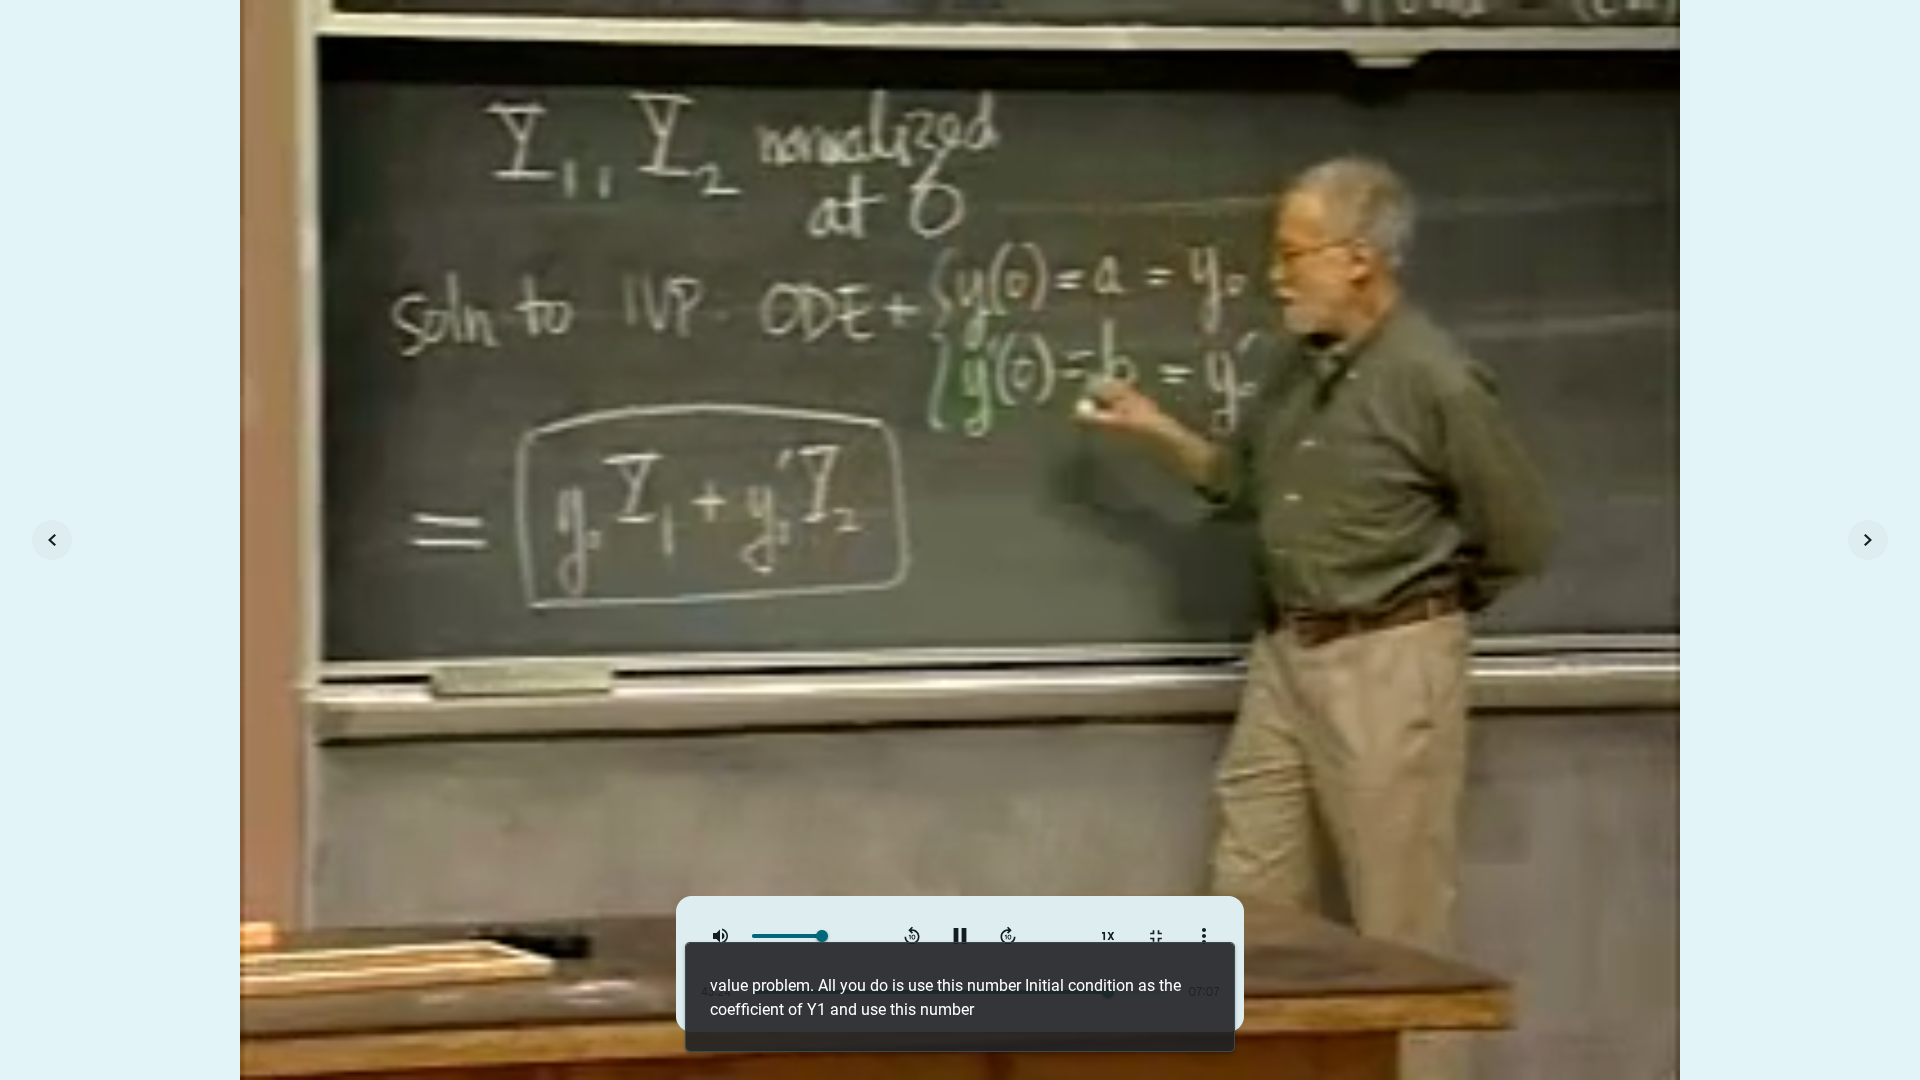 Y₁, Y₂ normalized
at 0
soln to IVP ODE + { y(0) = a = y₀
y'(0) = b = y₀'
= y₀Y₁ + y₀'Y₂
1X
07:07
value problem. All you do is use this number Initial condition as the
coefficient of Y1 and use this number